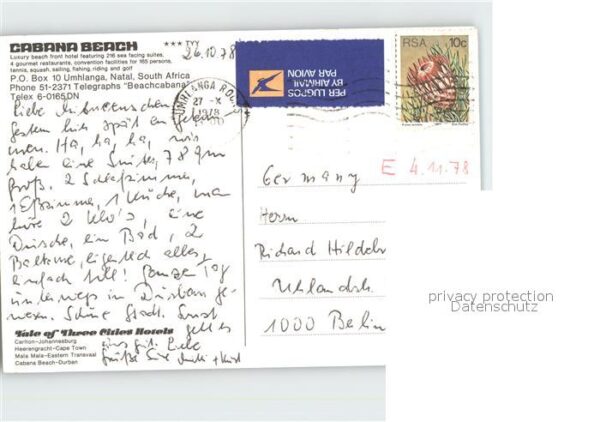 CABANA BEACH ***TYY
Luxury beach front hotel featuring 216 sea facing suites,
4 gourmet restaurants, convention facilities for 165 persons,
tennis, squash, sailing, fishing, riding and golf
P.O. Box 10 Umhlanga, Natal, South Africa
Phone 51-2371 Telegraphs "Beachcabana"
Telex 6-0165DN
26.10.78
Liebe
Gestern spät
Ha, ha, ha, wir
haben eine Suite, 78 qm
groß. 2 Schlafzimmer,
1 Eßzimmer, 1 Küche,
2 Klo's, eine
Dusche, ein Bad, 2
Balkone, eigentlich alles
einfach toll! Ganzen Tag
unterwegs in Durban ge-
wesen. Schöne Stadt. Sonst
geht es
uns gut. Liebe
Grüße
Tale of Three Cities Hotels
Carlton-Johannesburg
Heerengracht-Cape Town
Mala Mala-Eastern Transvaal
Cabana Beach-Durban
PER LUGPOS
BY AIRMAIL
PAR AVION
RSA 10c
UMHLANGA ROCKS
27 -X
1978
E 4.11.78
Germany
Herrn
Richard Hildebr
Uhlandstr.
1000 Berlin
privacy protection
Datenschutz